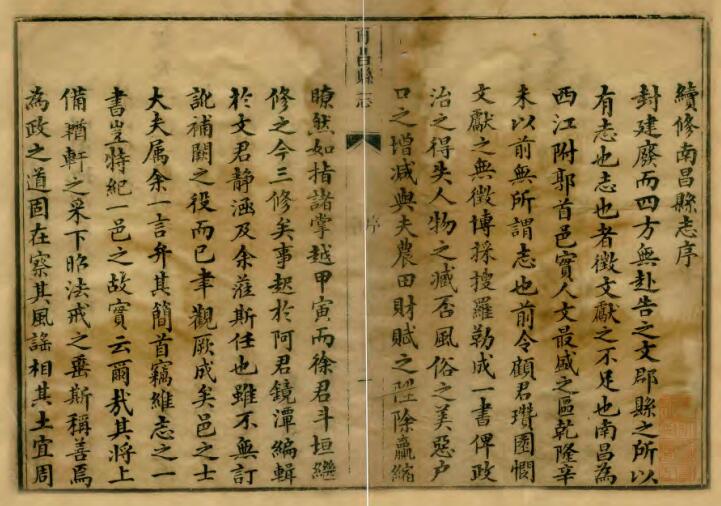 續修南昌縣志序
封建廢而四方無赴告之文郡縣之所以
有志也志也者徵文獻之不足也南昌為
西江附郭首邑實人文最盛之區乾隆辛
未以前無所謂志也前令顧君瓚園憫
文獻之無徵博採搜羅勒成一書俾政
治之得失人物之臧否風俗之美惡戶
口之增減與夫農田財賦之陞除贏縮
南昌縣志
序
一
瞭然如指諸掌越甲寅而徐君斗垣繼
修之今三修矣事起於阿君鏡潭編輯
於文君靜涵及余蒞斯任也雖不無訂
訛補闕之役而已聿觀厥成矣邑之士
大夫屬余一言弁其簡首竊維志之一
書豈特紀一邑之故實云爾哉其將上
備輶軒之采下昭法戒之垂斯稱善焉
為政之道固在察其風謠相其土宜周